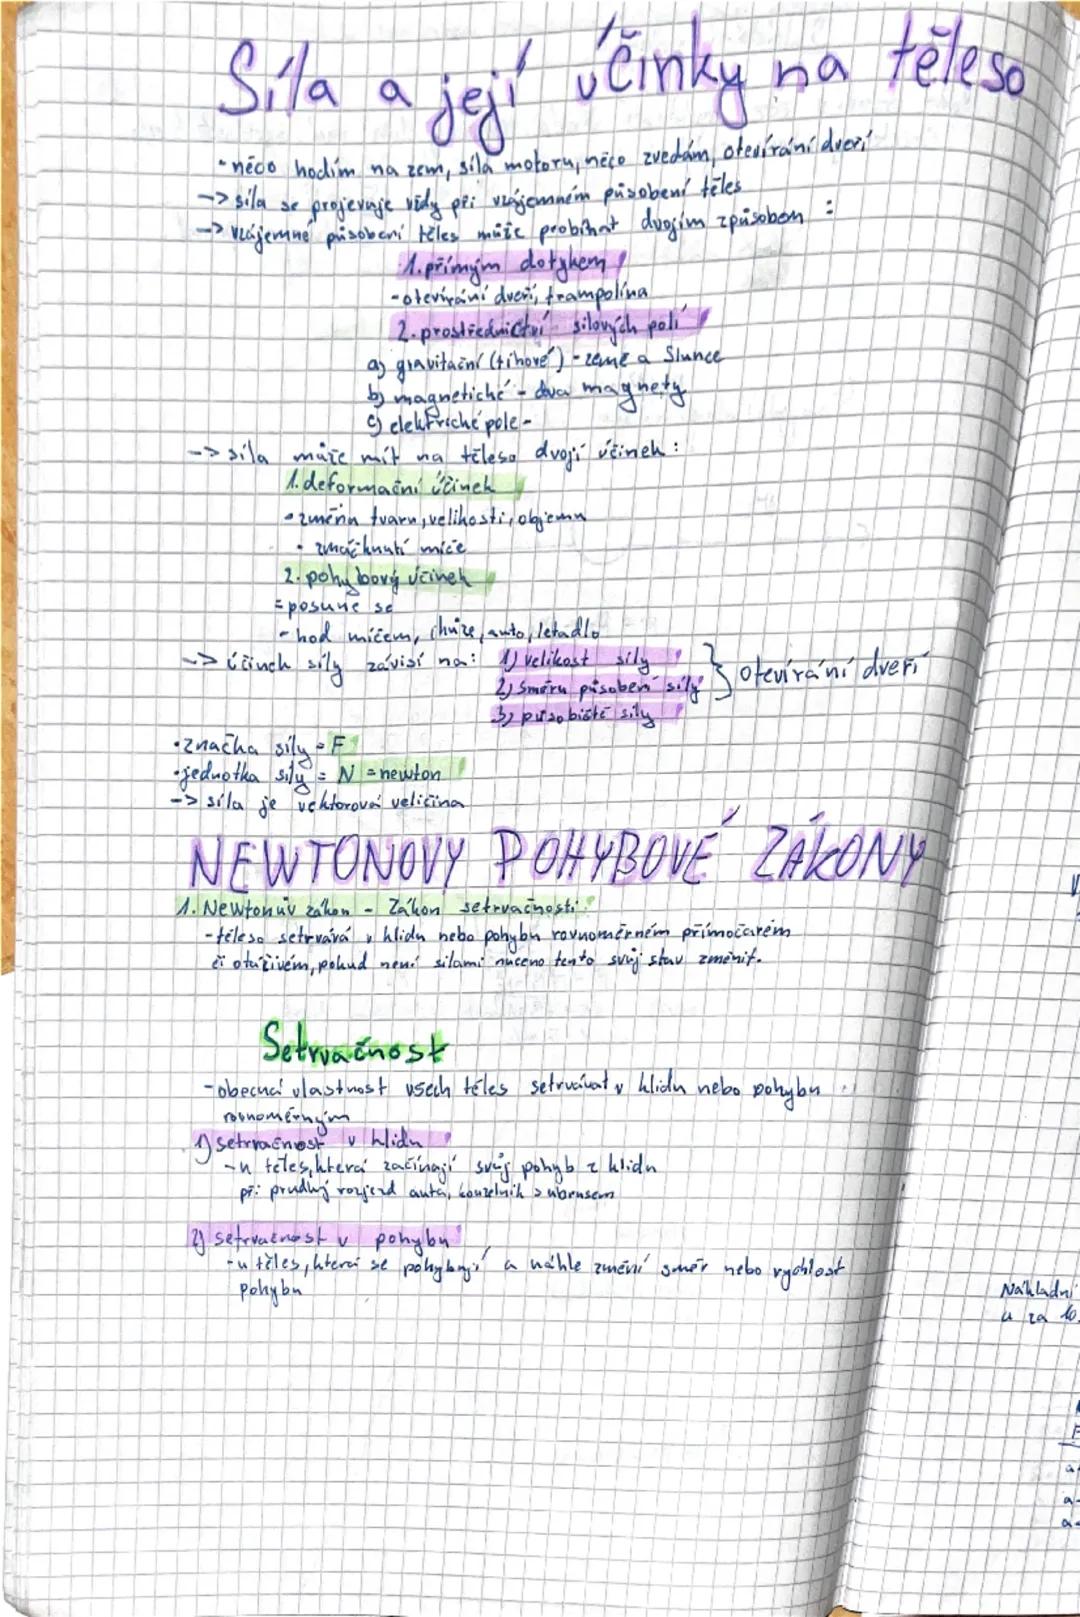 Síla a její účinky na těleso
- něco hodím na zem, síla motoru, něco zvedám, otevírání dveří
-> síla se projevuje vždy při vzájemném působení těles
-> vzájemné působení těles může probíhat dvojím způsobem :
1. přímým dotykem
- otevírání dveří, trampolína
2. prostřednictví silových polí
a) gravitační (tíhové) - země a Slunce
b) magnetické - dva magnety
c) elektrické pole -
-> síla může mít na těleso dvojí účinek :
1. deformační účinek
• změna tvaru, velikosti, objemu
• zmáčknutí míče
2. pohybový účinek
= posune se
- hod míčem, chůze, auto, letadlo
-> účinek síly závisí na: 1) velikost síly
2) směru působení síly } otevírání dveří
3) působiště síly
• značka síly = F
• jednotka síly = N = newton
-> síla je vektorová veličina
NEWTONOVY POHYBOVÉ ZÁKONY
1. Newtonův zákon - Zákon setrvačnosti
- těleso setrvává v klidu nebo pohybu rovnoměrném přímočarém
či otáčivém, pokud není silami nuceno tento svůj stav změnit.
Setrvačnost
- obecná vlastnost všech těles setrvávat v klidu nebo pohybu
rovnoměrným
1) setrvačnost v klidu
- u těles, která začínají svůj pohyb z klidu
př: prudký rozjezd auta, kouzelník s ubrusem
2) setrvačnost v pohybu
- u těles, která se pohybují a náhle změní směr nebo rychlost
pohybu
Nákladní
u za 10